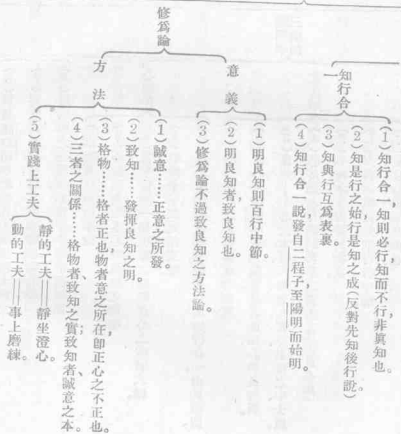 知行合一
(1) 知行合一,知則必行,知而不行,非眞知也。
(2) 知是行之始,行是知之成(反對先知後行說)
(3) 知與行互爲表裏。
(4) 知行合一說,發自二程子,至陽明而始明。
修爲論
意義
(1) 明良知則百行中節。
(2) 明良知者,致良知也。
(3) 修爲論不過致良知之方法論。
方法
(1) 誠意……正意之所發。
(2) 致知……發揮良知之明。
(3) 格物……格者正也,物者意之所在,卽正心之不正也。
(4) 三者之關係……格物者,致知之實;致知者,誠意之本。
(5) 實踐上工夫
靜的工夫——靜坐澄心。
動的工夫——事上磨練。